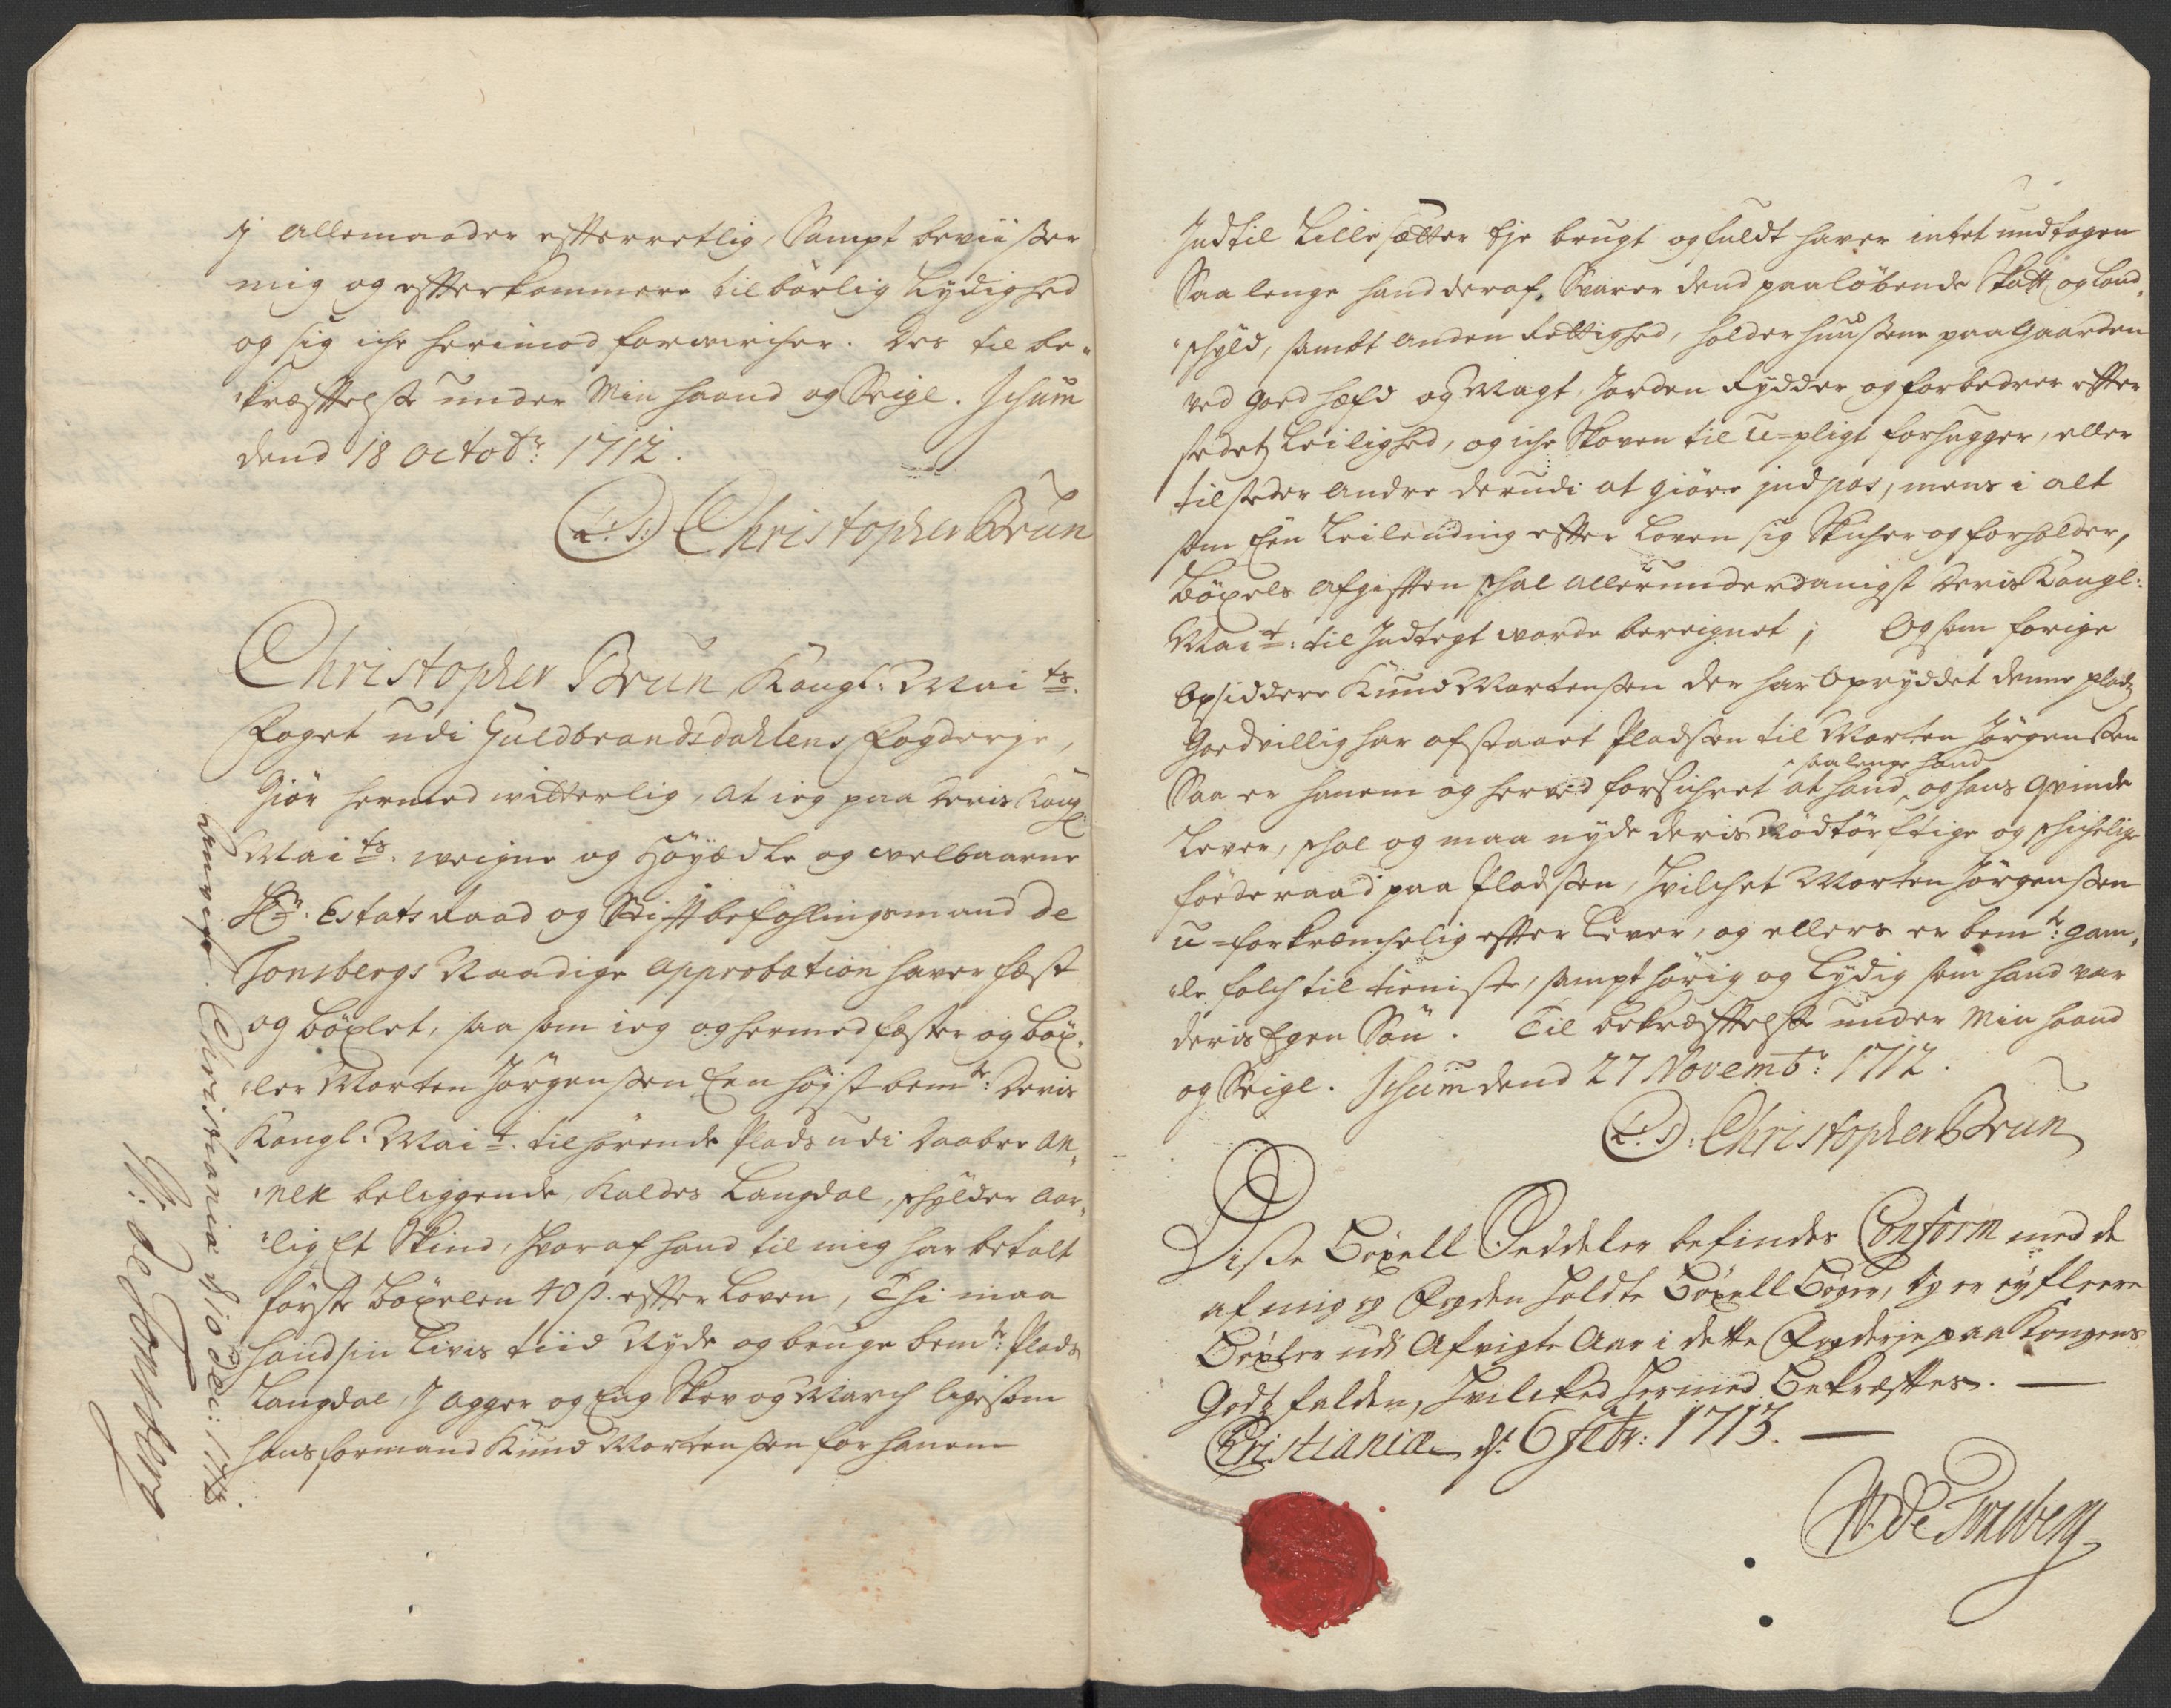 j allemaader efterretlig, Sampt beviisser
mig og efterkommere tilbørlig Lydighed
og sig iche herimod forvircher. Des til be¬
kræftelsse under Min haand og Seigl. Ichum
dend 18 octobr: 1712.
(L.S.) Christopher Brun
Christopher Brun Kongl: Maits.
Foget udi Guldbrandsdahlens Fogderje,
Giør hermed witterlig, at ieg paa Deris Kongl
Maits. weigne og Høyædle og velbaarne
Hr. Estats Raad og Stiftbefahlingsmand de
Tonsbergs Naadige Approbation haver fæst
og bøxlet, saa som ieg og hermed fæster og bøx¬
ler Morten Jørgenssen Een høyst bemte: Deris
Kongl: Mait. tilhørende Plads udi Raabor An¬
nex beliggende, Kaldes Langdal, schylder Aar¬
lig Et Skind, hvoraf hand til mig har betalt
første bøxelen 40 s. efter Loven, Thi maa
hand sin Livis tiid Nyde og bruge bemte: Plads
Langdal, J Agger og Eng Skov og March ligesom
hans formand Knud Mortenssen for hanem
Christiania d. 10 Dec: 1712.
W: de Tonsberg
Indtil Lillesætter Eje brugt og fuldt haver intet undtagen
Saa lenge hand deraf, Svarer dend paaløbende Skatt og Land¬
schyld, sambt anden Rettighed, holder huussene paa Gaarden
ved goed hæfd og Magt, Jorden Rydder og forbedrer efter
stedetz Leilighed, og iche Skoven til u-pligt forhugger, eller
tilsteder andre derudi at giøre jndpas, mens i alt
som Een Leilending efter Loven sig Skicher og forholder,
Bøxels Afgiften schal allerunderdanigst Deris Kongl:
Mait: til Indtegt vorde bereignet; Og som forige
Opsiddere Knud Mortenssen der har Opryddet denne pladz
Goedvillig har afstaaet Pladssen til Morten Jørgenssen
saa lenge hand
Saa er hanem og herved forsichret at hand, og hans Qvinde
Lever, schal og maa nyde deris Nødtørftige og schichelige
føderaad paa Pladssen, hvilchet Morten Jørgenssen
u-forkrænchelig efter Lever, og ellers er bemte: gam¬
le folch til tieniste, sampt hørig og Lydig som hand var
deris Egen Søn. Til bekræftelsse under Min haand
og Seigl. Ichum dend 27 Novembr: 1712.
(L.S.) Christopher Brun
Disse Bøxell Seddeler befindes Conform med de
af mig og Fogden holdte Bøxell Bøger, og er ey fleere
Bøxler udi Afvigte Aar i dette Fogderje paa Kongens
Godtz falden, hvilcked hermed Bekræftes.
Christiania dt. 6 Febr: 1713.
W. de Tonsberg